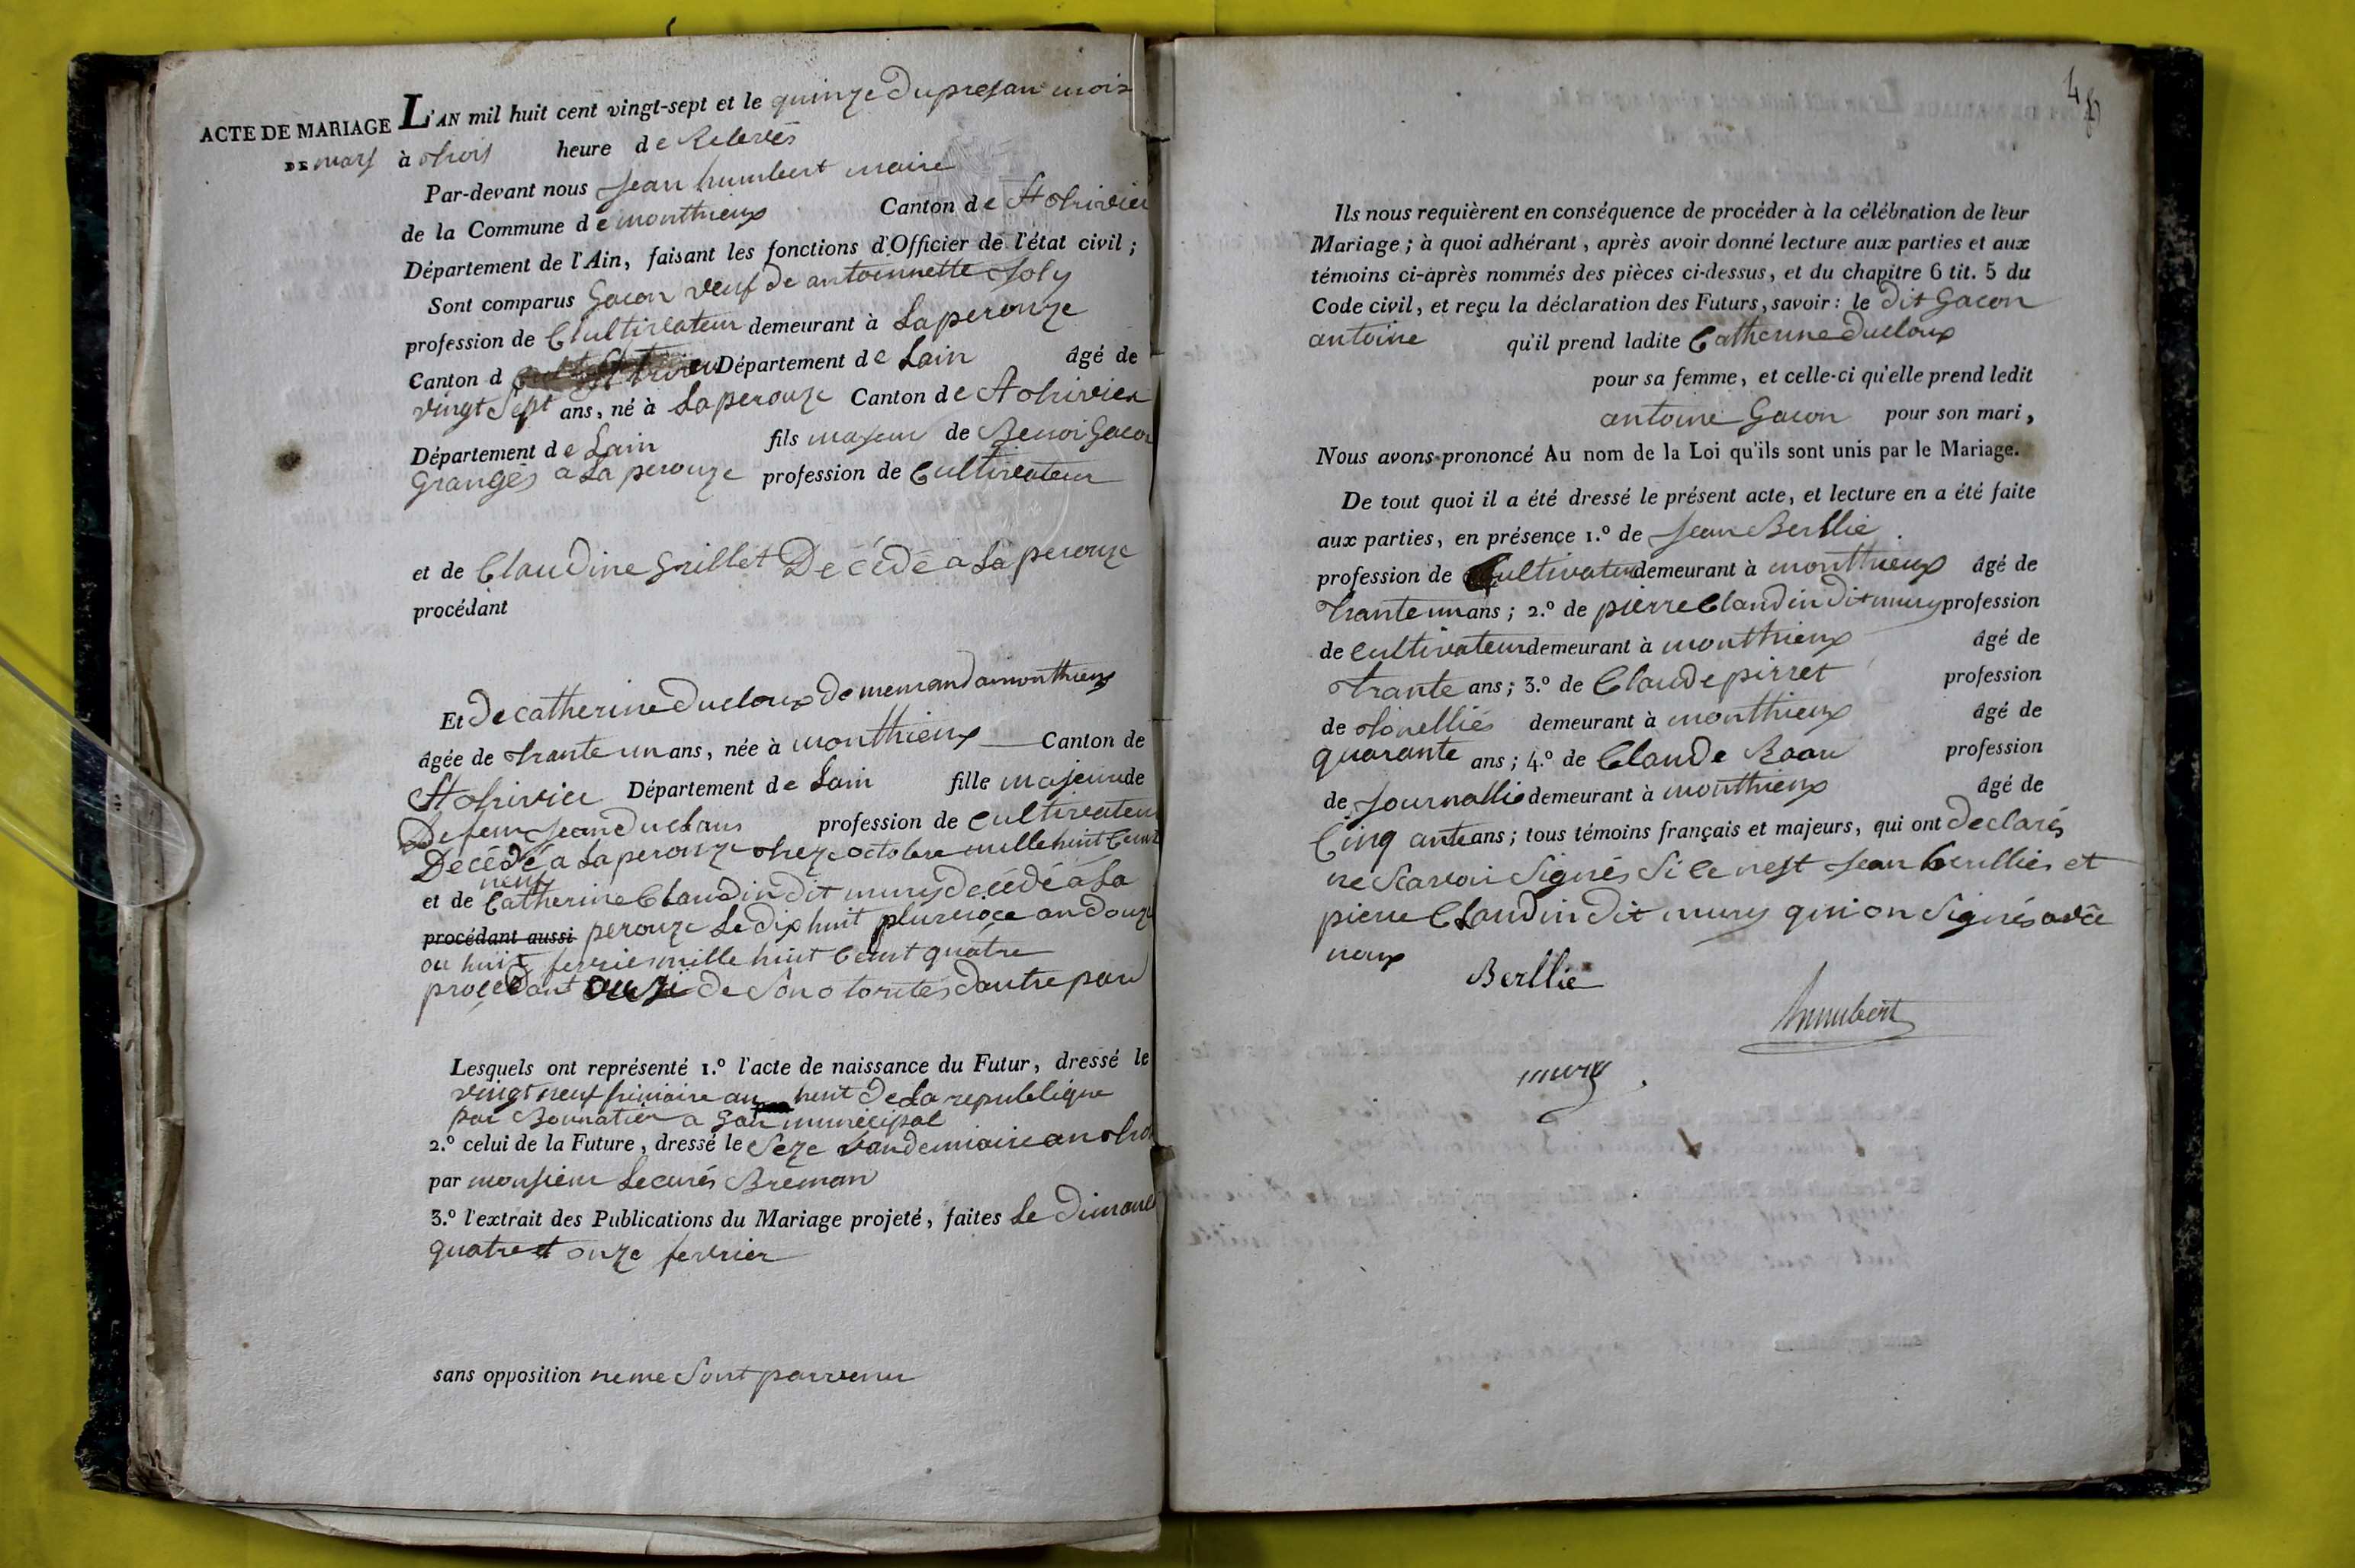 ACTE DE MARIAGE L'AN mil huit cent vingt-sept et le quinze du presan mois
DE mars à trois heure de Relevés
Par-devant nous Jean humbert maire
de la Commune de monthieux Canton de St trivier
Département de l'Ain, faisant les fonctions d'Officier de l'état civil ;
Sont comparus Gacon veuf de antoinnette Joly
profession de Cultivateur demeurant à Laperouze
Canton d St trivier Département de Lain âgé de
vingt Sept ans, né à Laperouze Canton de St trivier
Département de Lain fils majeur de Benoi Gacon
Grangés a La perouze profession de Cultivateur
et de Claudine Grillet Décédé a La perouze
procédant
Et De catherine Ducloux demeurand a monthieux
âgée de trante un ans, née à monthieux Canton de
St trivier Département de Lain fille majeur de
De feu Jean Duclaus profession de cultivateur
Décédé a La perouze treze octobre mille huit Cent
neuf
et de Catherine Claudin dit mury décédé a La
procédant aussi perouze Le dix huit pluviôce an douze
ou huit fevrier mille huit Cent quatre
procédant ausi de Son otorités dautre par
Lesquels ont représenté 1.º l'acte de naissance du Futur, dressé le
vingt neuf frimaire an huit de La republique
par Bonnatier a gan municipal
2.º celui de la Future, dressé le Seze vandemiaire an troi
par monsieur Lecurés Breman
3.º l'extrait des Publications du Mariage projeté, faites Le dimanc
quatre et onze fevrier
sans opposition neme Sont parvenu
4
Ils nous requièrent en conséquence de procéder à la célébration de leur
Mariage ; à quoi adhérant, après avoir donné lecture aux parties et aux
témoins ci-après nommés des pièces ci-dessus, et du chapitre 6 tit. 5 du
Code civil, et reçu la déclaration des Futurs, savoir : le dit Gacon
antoine qu'il prend ladite Catherine Ducloux
pour sa femme, et celle-ci qu'elle prend ledit
antoine Gacon pour son mari,
Nous avons prononcé Au nom de la Loi qu'ils sont unis par le Mariage.
De tout quoi il a été dressé le présent acte, et lecture en a été faite
aux parties, en présence 1.º de Jean Berllie
profession de Cultivateur demeurant à monthieux âgé de
trante un ans ; 2.º de pierre Claudin dit mury profession
de cultivateur demeurant à monthieux âgé de
trante ans ; 3.º de Claude pirret profession
de tonelliés demeurant à monthieux âgé de
quarante ans ; 4.º de Claude Raau profession
de Journallié demeurant à monthieux âgé de
Cinq ante ans ; tous témoins français et majeurs, qui ont declarés
ne Scavoir Signés Si ce nest Jean berllies et
pierre Claudin dit mury qui on Signés avéc
noux
Berllie
humbert
mury